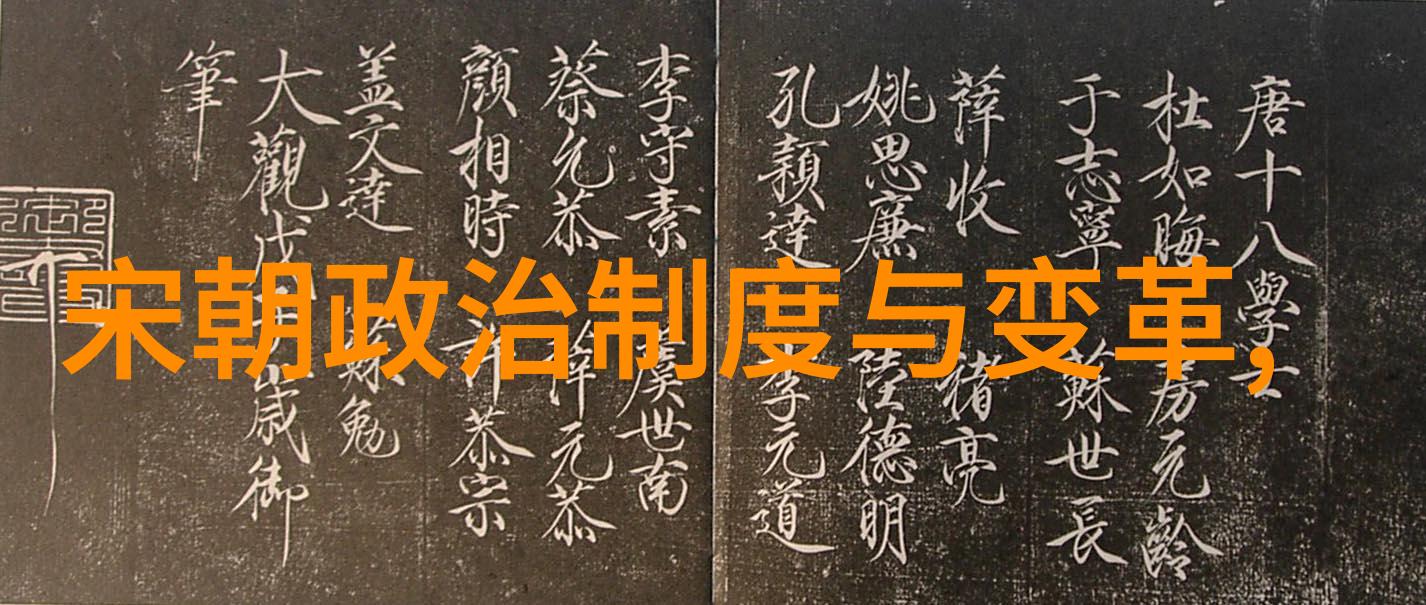 宋朝政治制度与变革,
唐十八學士
杜如晦 房元齡
于志寧 蘇世長
薛收 褚亮
姚思廉 陸德明
孔穎達 李元道
李守素 虞世南
蔡允恭 薛元恭
顔相時 許恭宗
盖文達 蘇勉
大觀戊子歲御
筆